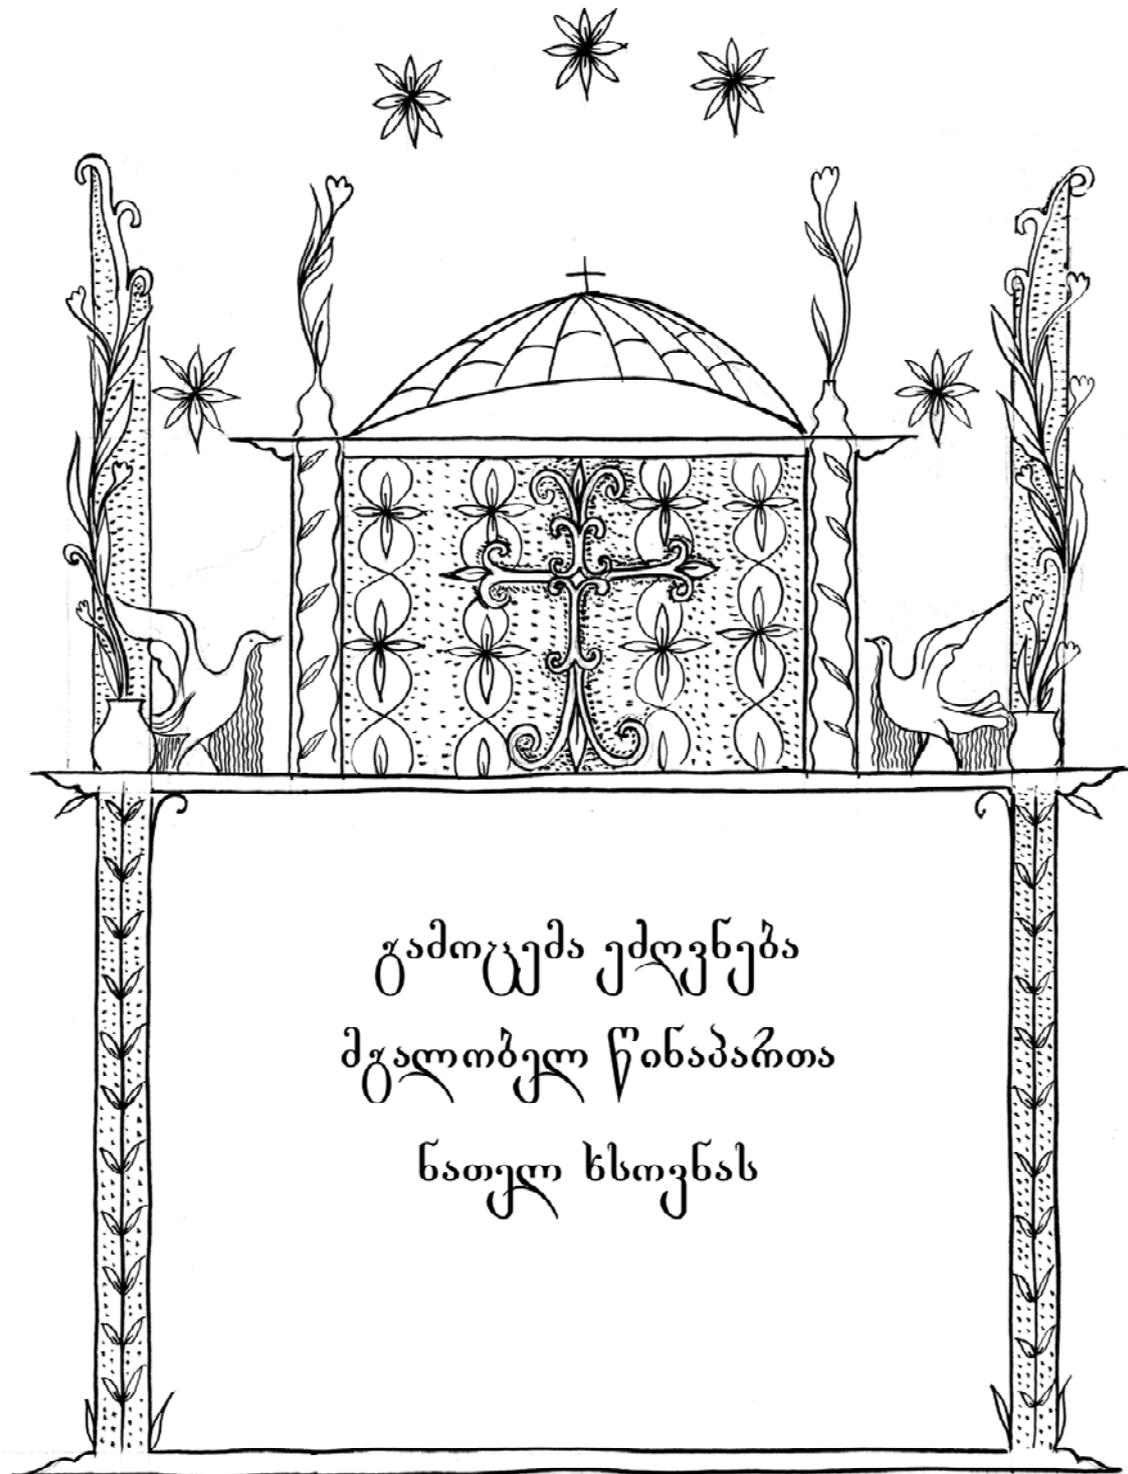 გამოცემა ეძღვნება
მგალობელ წინაპართა
ნათელ ხსოვნას